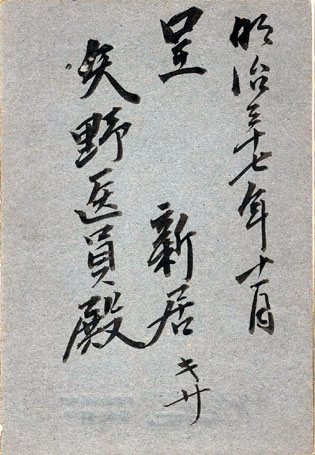 明治三十七年十一月
呈 新居キサ
矢野医員殿